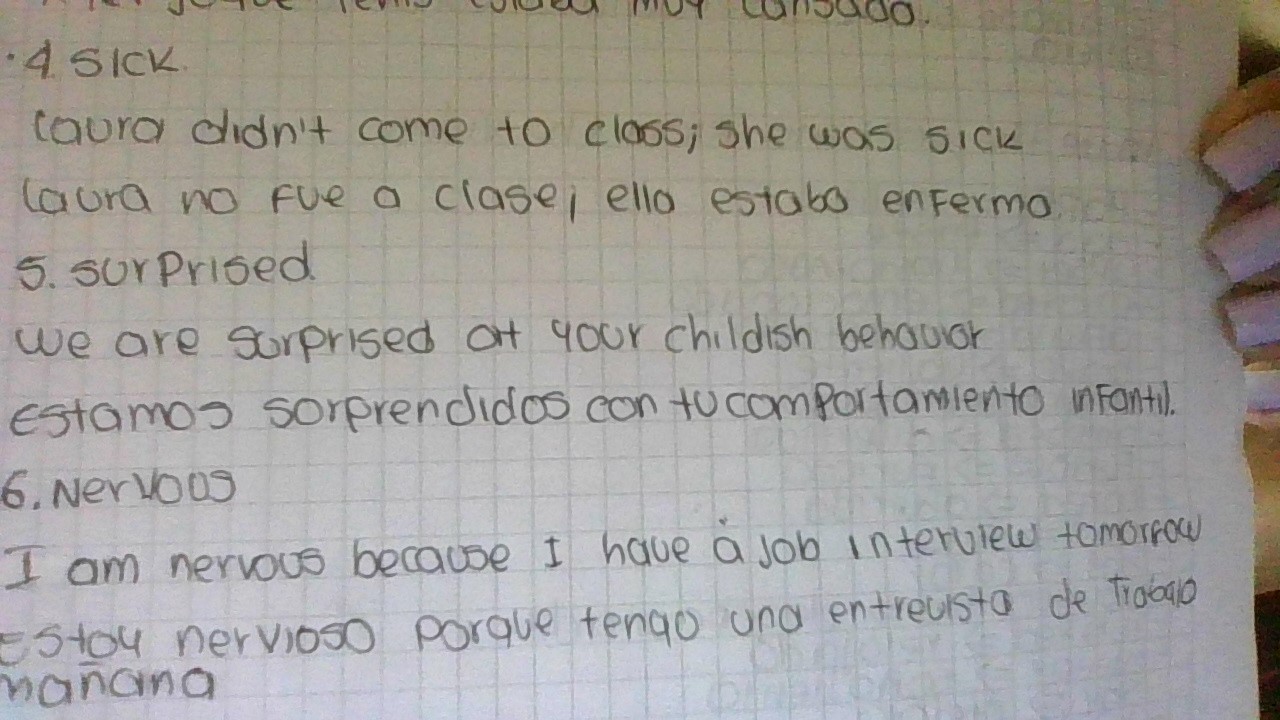 tenis estaba muy cansado.
.4. SICK.
Laura didn't come to class; she was sick
Laura no fue a clase; ella estaba enferma.
5. surprised.
we are surprised at your childish behavior
Estamos sorprendidos con tu comportamiento infantil.
6. Nervous
I am nervous because I have a job interview tomorrow
Estoy nervioso porque tengo una entrevista de Trabajo
mañana